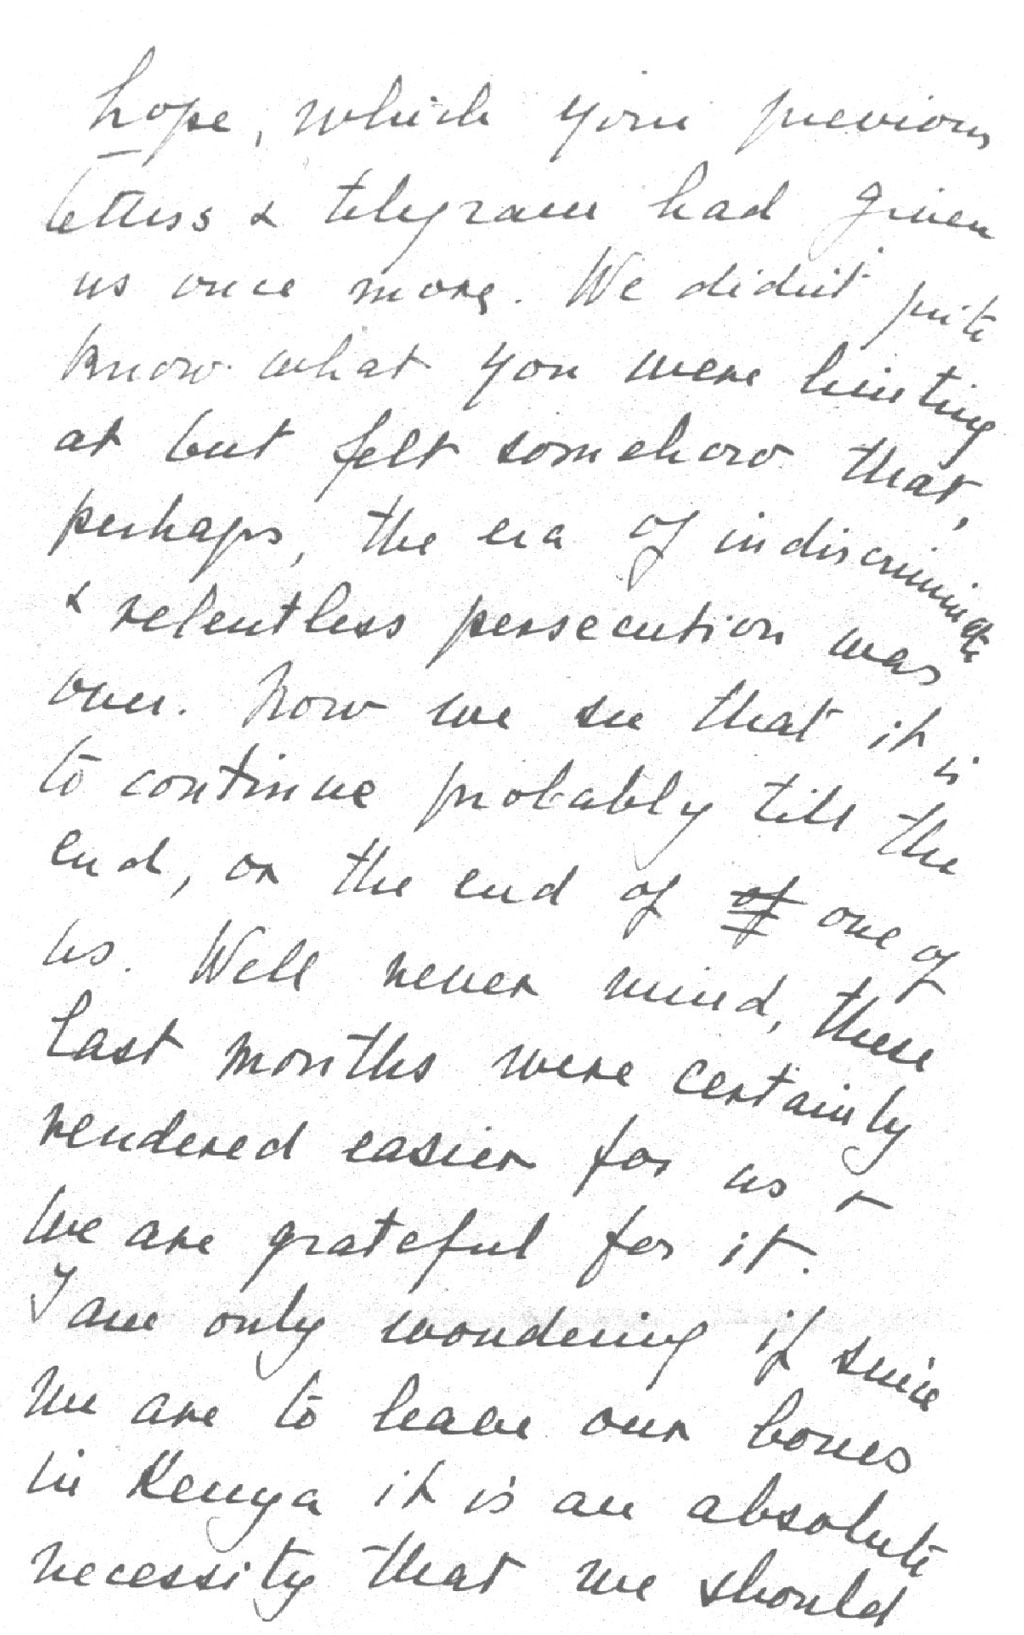 hope, which your previous
letters & telegram had given
us once more. We didn't quite
know what you were hinting
at but felt somehow that,
perhaps, the era of indiscriminate
& relentless persecution was
over. Now we see that it is
to continue probably till the
end, or the end of of one of
us. Well never mind, these
last months were certainly
rendered easier for us &
we are grateful for it.
I am only wondering if since
we are to leave our bones
in Kenya it is an absolute
necessity that we should